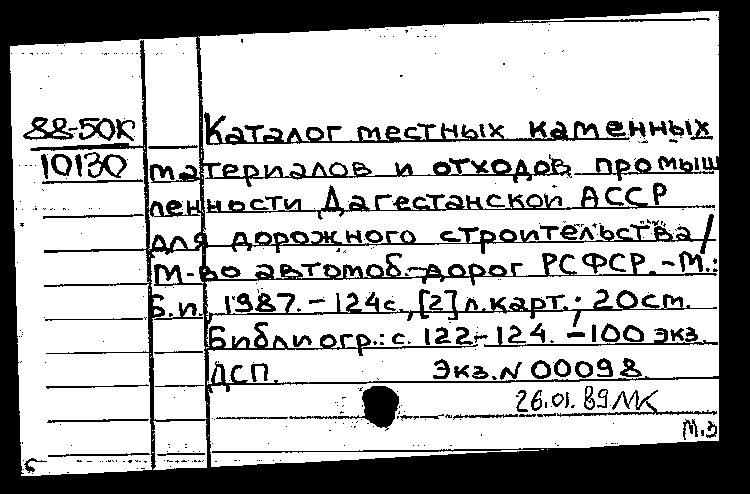 88-50К Каталог местных каменных
10130 материалов и отходов промыш
ленности Дагестанской АССР
для дорожного строительства/
М-во автомоб. дорог РСФСР. - М.:
Б.и., 1987. - 124с., [2] л.карт.; 20см.
Библиогр.: с. 122-124. - 100 экз.
ДСП. Экз. N 00098
26.01.89 МК
М.З